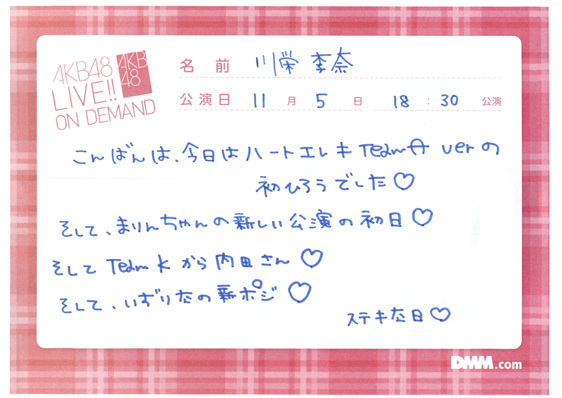 AKB48
LIVE!!
ON DEMAND
AKB
48
名 前 川栄 李奈
公演日 11 月 5 日 18 : 30 公演
こんばんは、今日はハートエレキ TeamA verの
初ひろうでした♡
そして、まりんちゃんの新しい公演の初日♡
そして Team K から内田さん♡
そして、いずりなの新ポジ♡
ステキな日♡
DMM.com